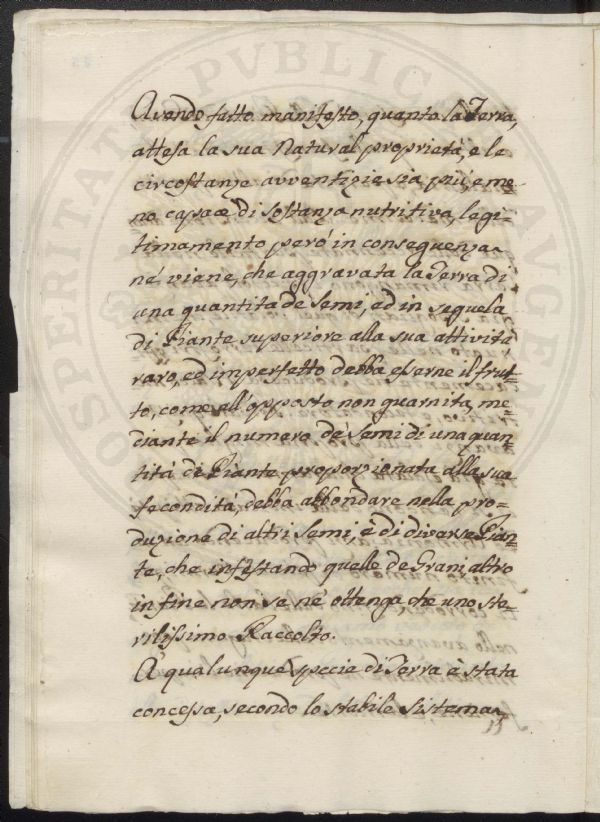 Avendo fatto manifesto, quanto la Terra,
attesa la sua Natural proprietá, e le
circostanze avventizie sia piú, e me=
no capace di sostanza nutritiva, legi=
timamento peró in conseguenza
né viene, che aggravata la Terra di
una quantita de Semi, ed in sequela
di Piante superiore alla sua attivitá,
raro, ed imperfetto debba esserne il frut=
to, come all'opposto non guarnita, me=
diante il numero de Semi di una quan=
titá di Piante proporzionata alla sua
fecónditá, debba abbondare nella pro=
duzione di altri Semi, é di diverse Pian=
te, che infestando quelle de Grani altro
infine non se né ottenga, che uno ste=
rilissimo Raccolto.
A' qualunque specie di Terra é stata
concessa, secondo lo stabile Sistema,
PROSPERITATI PUBLICAE AUGENDAE